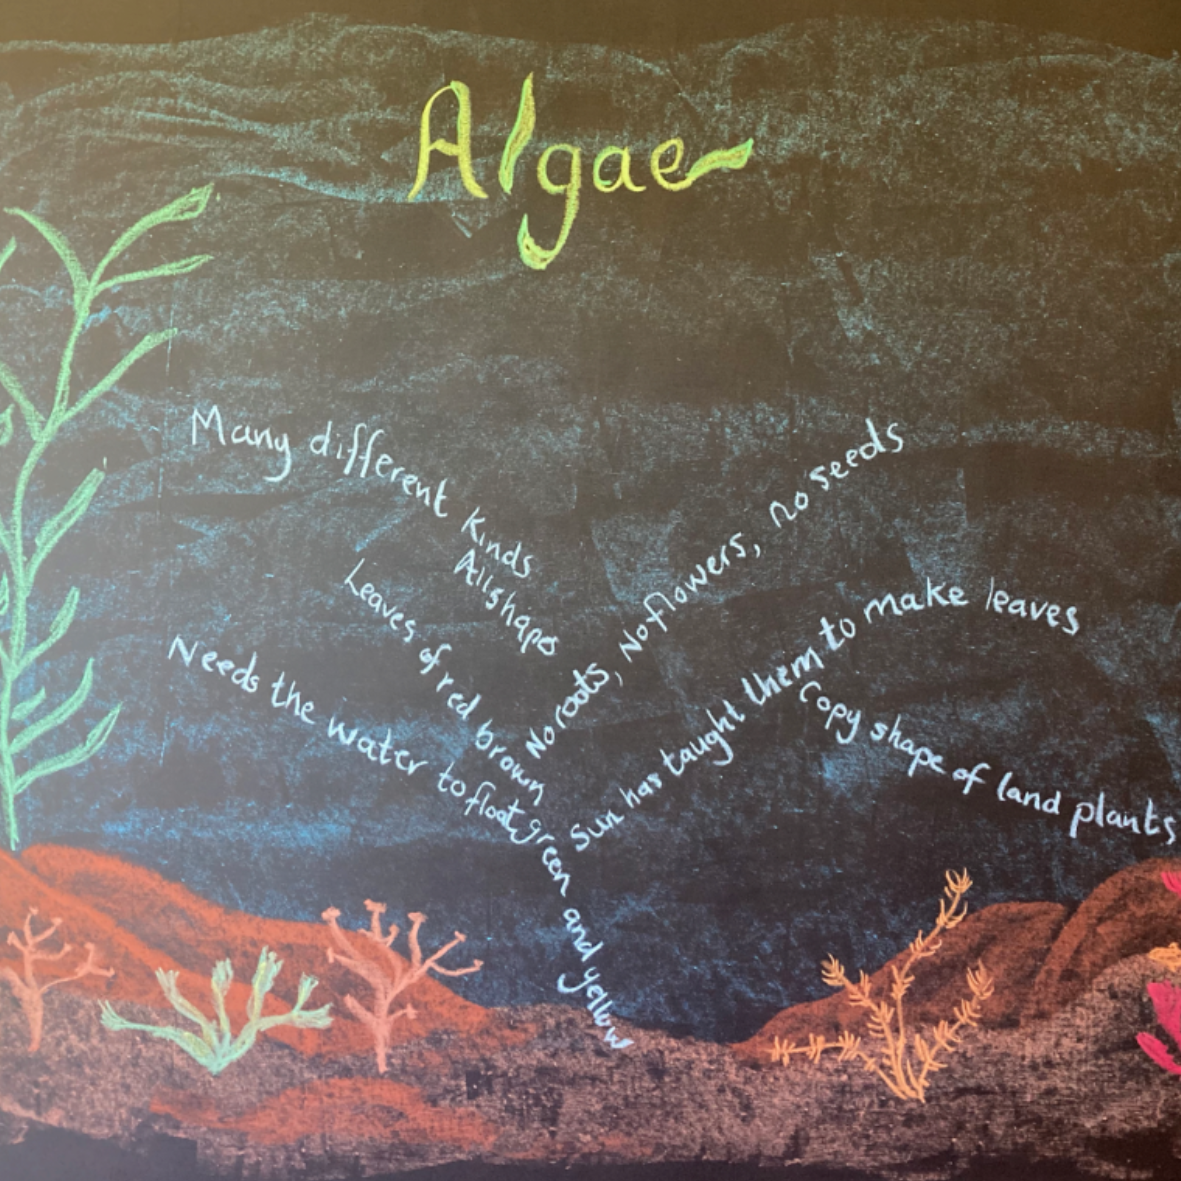 Algae
Many different kinds
All shapes
Leaves of red brown green and yellow
Needs the water to float
No roots, No flowers, no seeds
Sun has taught them to make leaves
Copy shape of land plants